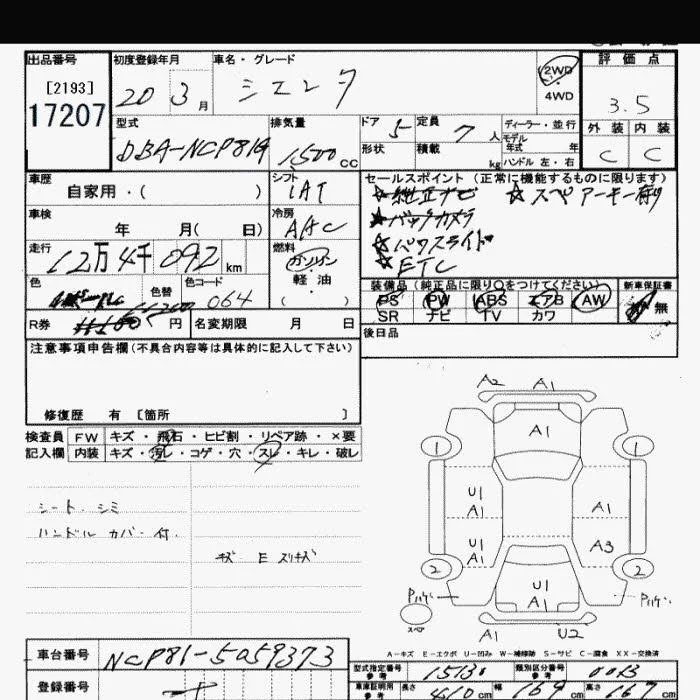 出品番号 初度登録年月 車名・グレード 評価点
[2193] 20 3月 シエンタ 2WD 4WD 3.5
17207
型式 排気量 ドア 5 定員 7人 ディーラー・並行 外装 内装
DBA-NCP81G 1500cc 形状 積載 kg モデル年式 年 C C
ハンドル 左・右
車歴 シフト セールスポイント (正常に機能するものに限ります)
自家用・( ) IAT ☆純正ナビ ☆スペアーキー有り
車検 冷房 ☆バックカメラ
年 月( 日) AAC ☆パワスライド
走行 燃料 ☆ETC
12万4千092km ガソリン
軽油
( )
色 色替 色コード 064 装備品 (純正品に限り○をつけてください) 新車保証書
PS PW ABS エアB AW 無
R券 円 名変期限 月 日 SR ナビ TV カワ
後日品
注意事項申告欄(不具合内容等は具体的に記入して下さい)
修復歴 有 [箇所 ]
検査員 FW キズ・飛石・ヒビ割・リペア跡・×要
記入欄 内装 キズ・汚レ・コゲ・穴・スレ・キレ・破レ
A2 A1
A1
1 1
シート シミ
ハンドル カバー付
U1 A1 A1
キズ E スリキズ
U1 A1 A3
2 2
U1 A1
スペア
A1 U2
A-キズ E-エクボ U-凹み W-補修跡 S-サビ C-腐食 XX-交換済
車台番号 NCP81-5059373
型式指定番号 参考 15131 類別区分番号 参考 0013
登録番号
車庫証明用 参考 長さ 410cm 幅 169cm 高さ cm